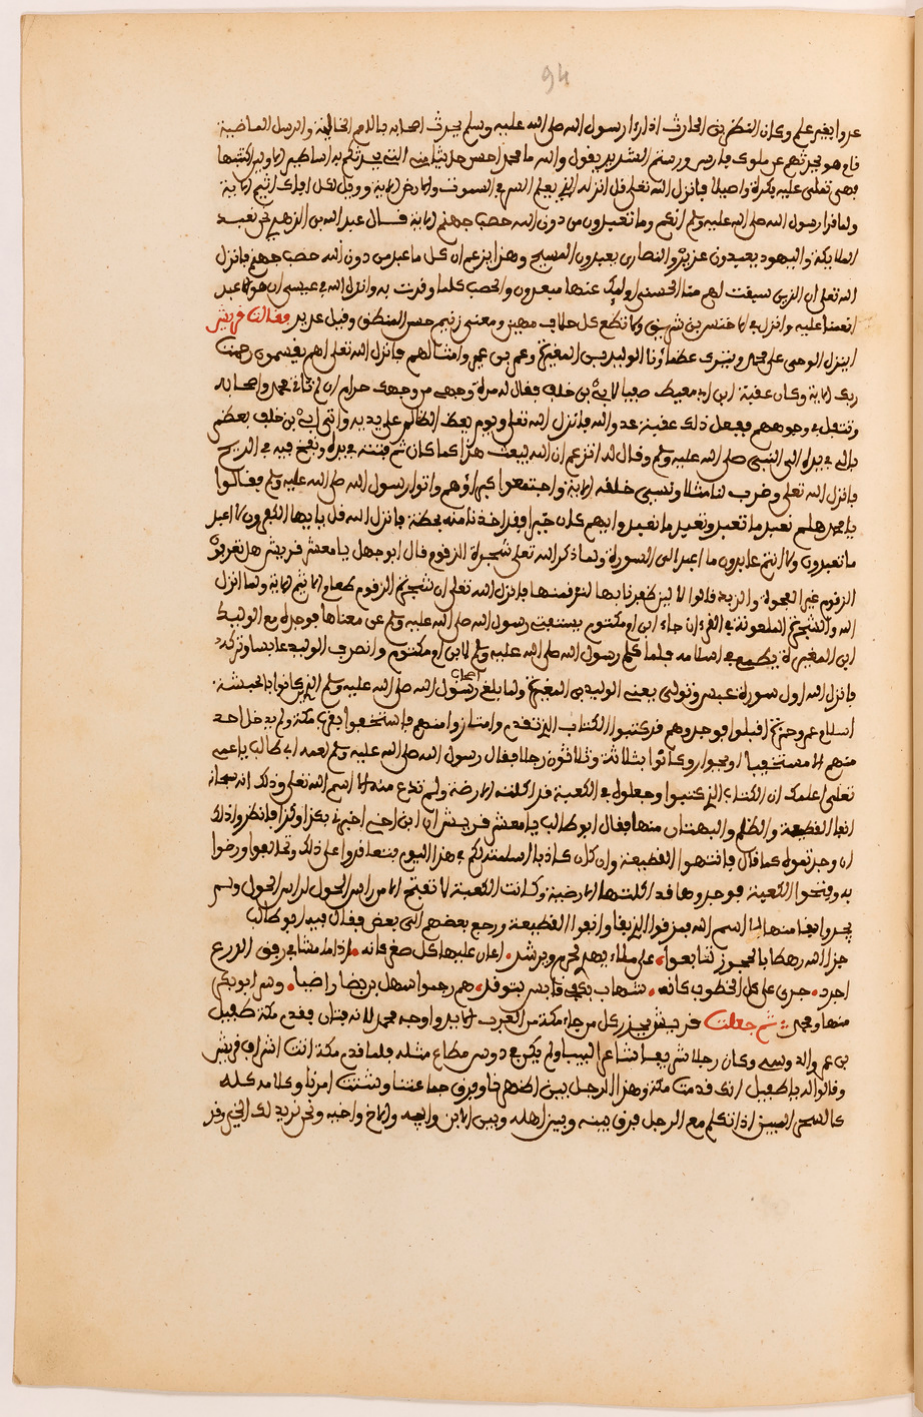 94
عدوا بغير علم وكان النضر بن الحارث اذا رءا رسول الله صلى الله عليه وسلم يحدث اصحابه بالامم الخالية والرسل الماضية
قام هو يحدثهم عن ملوك فارس ورستم الشديد يقول والله ما محمد احسن حديثا مني التي يحدثكم به اساطير الاولين اكتتبها
فهي تملى عليه بكرة واصيلا فانزل الله تعلى قل انزله الذي يعلم السر في السموت والارض الاية وويل لكل افاك اثيم الاية
ولما قرا رسول الله صلى الله عليه وسلم انكم وما تعبدون من دون الله حصب جهنم الاية قال عبد الله بن الزبعرى نحن نعبد
الملايكة واليهود يعبدون عزيرا والنصارى يعبدون المسيح وهذا يزعم ان كل ما عبد من دون الله حصب جهنم فانزل
الله تعلى ان الذين سبقت لهم منا الحسنى اوليك عنها مبعدون والحصب كلما وقدت به وانزل الله في عيسى ان هو الا عبد
انعمنا عليه وانزل في الاخنس بن شريق ولا تطع كل حلاف مهين ومعنى زنيم حسن المنطق وقيل عديد فقالت قريش
اينزل الوحي على محمد ونترك عظماؤنا الوليد بن المغيرة وعمر بن عمير وامثالهم فانزل الله تعلى اهم يقسمون رحمت
ربك الاية وكان عقبة ابن ابي معيط صفيا لابي بن خلف فقال له مراة وجهي من وجهك حرام ان لم تات محمد واصحابه
وتتفل في وجوههم ففعل ذلك عقبة عدو الله فانزل الله تعلى ويوم يعض الظالم على يديه واتى ابي بن خلف بعظم
بالي في يده الى النبي صلى الله عليه وسلم وقال له اتزعم ان الله يبعث هذا كما كان ثم فتته في يده ونفخ فيه في الريح
فانزل الله تعلى وضرب لنا مثلا ونسي خلقه الاية واجتمعوا كبراؤهم واتوا رسول الله صلى الله عليه وسلم فقالوا
يا محمد هلم نعبد ما تعبد وتعبد ما نعبد وايهم كان خيرا فقد اخذنا منه بحظه فانزل الله قل يايها الكفرون لا اعبد
ما تعبدون ولا انتم عابدون ما اعبد الى السورة ولما ذكر الله تعلى شجرة الزقوم قال ابو جهل يا معشر قريش هل تعرفون
الزقوم غير العجوة والزبد قالوا لا لين ظفرنا بها لنزقمنها فانزل الله تعلى ان شجرة الزقوم طعام الاثيم الاية ولما انزل
الله والشجرة الملعونة في القرءان جاء ابن ام مكتوم يستفتي رسول الله صلى الله عليه وسلم عن معناها فوجده مع الوليد
ابن المغيرة يطمع في اسلامه فلما كلم رسول الله صلى الله عليه وسلم لابن ام مكتوم وانصرف الوليد عابسا وتركه
فانزل الله اول سورة عبس وتولى يعني الوليد بن المغيرة ولما بلغ اصحاب رسول الله صلى الله عليه وسلم الذي كانوا بالحبشة
اسلام عمر وحمزة اقبلوا فوجدوهم قد كتبوا الكتاب الذي تقدم وامتازوا منهم فاستخفوا بقرب مكة ولم يدخل احد
منهم الا مستخفيا او بجوار وكانوا ثلاثة وثلاثون رجلا فقال رسول الله صلى الله عليه وسلم لعمه ابي طالب يا عمي
تعلى اعلمك ان الكتاب الذي كتبوا وجعلوه في الكعبة قد اكلته الارضة ولم تدع منه الا اسم الله تعلى وذلك انه سبحانه
انفا القطيعة والظلم والبهتان منها فقال ابو طالب يا معشر قريش ان ابن اخي اخبرني بكذا وكذا فانظروا ذلك
ان وجدتموه كما قال فانتهوا القطيعة وان كان كاذبا ارسلته لكم في هذا اليوم فتعاقدوا على ذلك وتحالفوا ورضوا
به وفتحوا الكعبة فوجدوها قد اكلتها الارضة وكانت الكعبة لا تفتح الا من راس الحول لراس الحول ولم
يجدوا بقا منها الا اسم الله فمزقوا البقا وانفوا القطيعة ورجع بعضهم الى بعض فقال فيه ابو طالب
جزا الله رهطا بالحجون تتابعوا على ملاء يهدي لحزم ويرشد اعان عليها كل صقر كانه اذا ما مشا في رفرف الدرع
اجرد جرى على كل الخطوب كانه شهاب بكفي قابس يتوقد هم رجعوا سهل بن بيضا راضيا وسر ابو بكر
منها ومحمد ثم جعلت قريش يحذرون كل من جاء مكة من العرب الا يرد اوجه محمد لانه فتان فقدم مكة طفيل
بن عمر والدوسي وكان رجلا شريفا شاعرا لبيبا ولم يكن في دوس مطاع مثله فلما قدم مكة اتت اشراف قريش
وقالوا له يا طفيل انك قدمت مكة وهذا الرجل بين اظهرنا وفرق جماعتنا وشتت امرنا وكلامه كله
كالسحر المبين اذا تكلم مع الرجل فرق بينه وبين اهله وبين الابن وابيه والاخ واخيه ونحن نريد لك الخير وقد